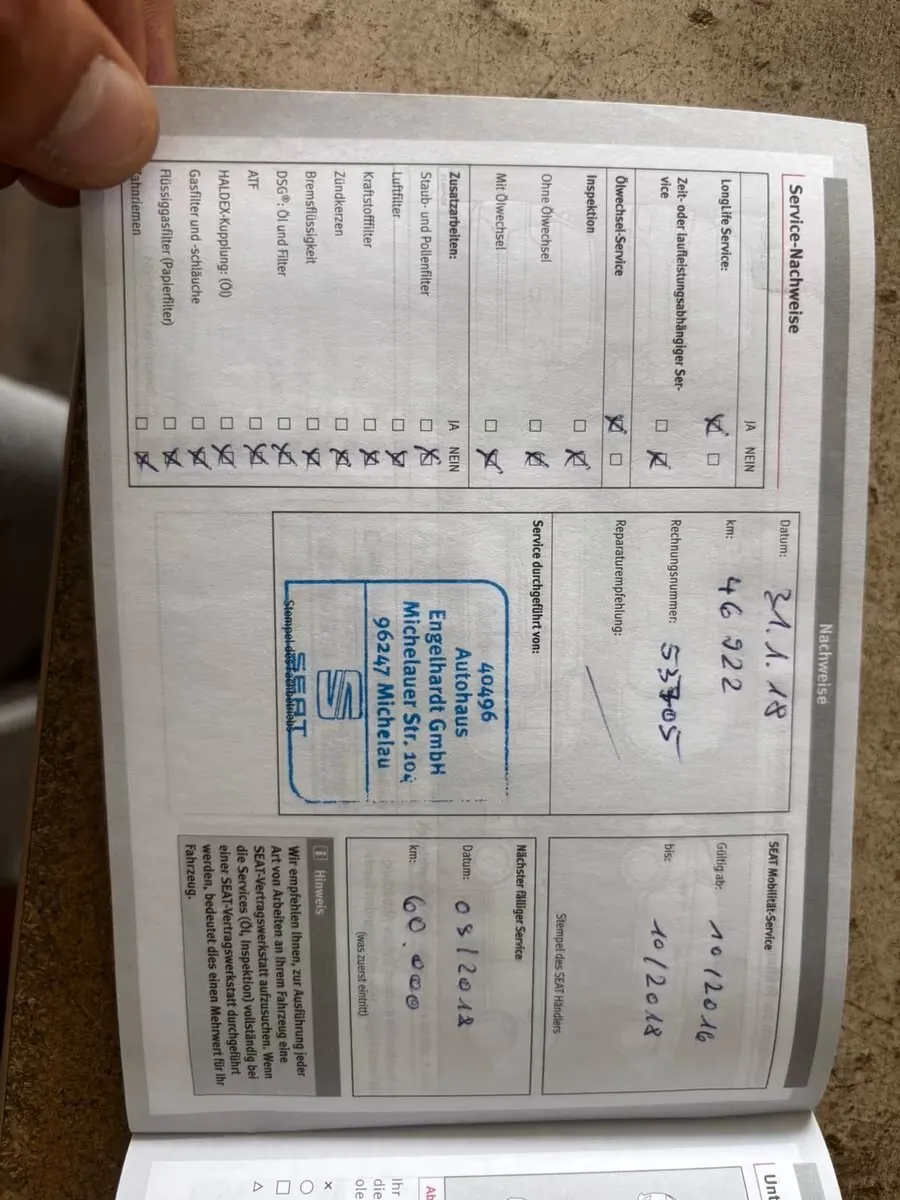 Nachweise
Service-Nachweise
JA NEIN
LongLife Service:
Zeit- oder laufleistungsabhängiger Ser-
vice
Ölwechsel-Service
Inspektion
Ohne Ölwechsel
Mit Ölwechsel
Zusatzarbeiten: JA NEIN
Staub- und Pollenfilter
Luftfilter
Kraftstofffilter
Zündkerzen
Bremsflüssigkeit
DSG®: Öl und Filter
ATF
HALDEX-Kupplung: (Öl)
Gasfilter und -schläuche
Flüssiggasfilter (Papierfilter)
ahnriemen
Datum: 31.1.18
km: 46 922
Rechnungsnummer: 53705
Reparaturempfehlung:
Service durchgeführt von:
40496
Autohaus
Engelhardt GmbH
Michelauer Str. 10
96247 Michelau
SEAT
Stempel des Fachbetriebs
SEAT Mobilität-Service
Gültig ab: 10/2016
bis: 10/2018
Stempel des SEAT Händlers
Nächster fälliger Service
Datum: /2018
km: 60.000
(was zuerst eintritt)
i Hinweis
Wir empfehlen Ihnen, zur Ausführung jeder
Art von Arbeiten an Ihrem Fahrzeug eine
SEAT-Vertragswerkstatt aufzusuchen. Wenn
die Services (Öl, Inspektion) vollständig bei
einer SEAT-Vertragswerkstatt durchgeführt
werden, bedeutet dies einen Mehrwert für Ihr
Fahrzeug.
Unt
Ab
Ihr
die
ole